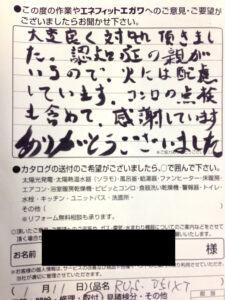 ●この度の作業やエネフィットエガワへのご意見・ご要望が
ございましたらお聞かせ下さい。
大変良く対処頂きまし
た。認知症の親が
いるので、火には配慮
しています。コンロの点検
も含めて、感謝しています
ありがとうございました
●カタログの送付のご希望がございましたら、○で囲んで下さい。
太陽光発電・太陽熱温水器(ソラモ)・風呂釜・給湯器・ファンヒーター・床暖房・
エアコン・浴室暖房乾燥機・ピピッとコンロ・食器洗い乾燥機・警報器・トイレ・
水栓・キッチン・ユニットバス・洗面所・
その他(
※リフォーム無料相談も承ります。
お名前
様
11日(品名
その他